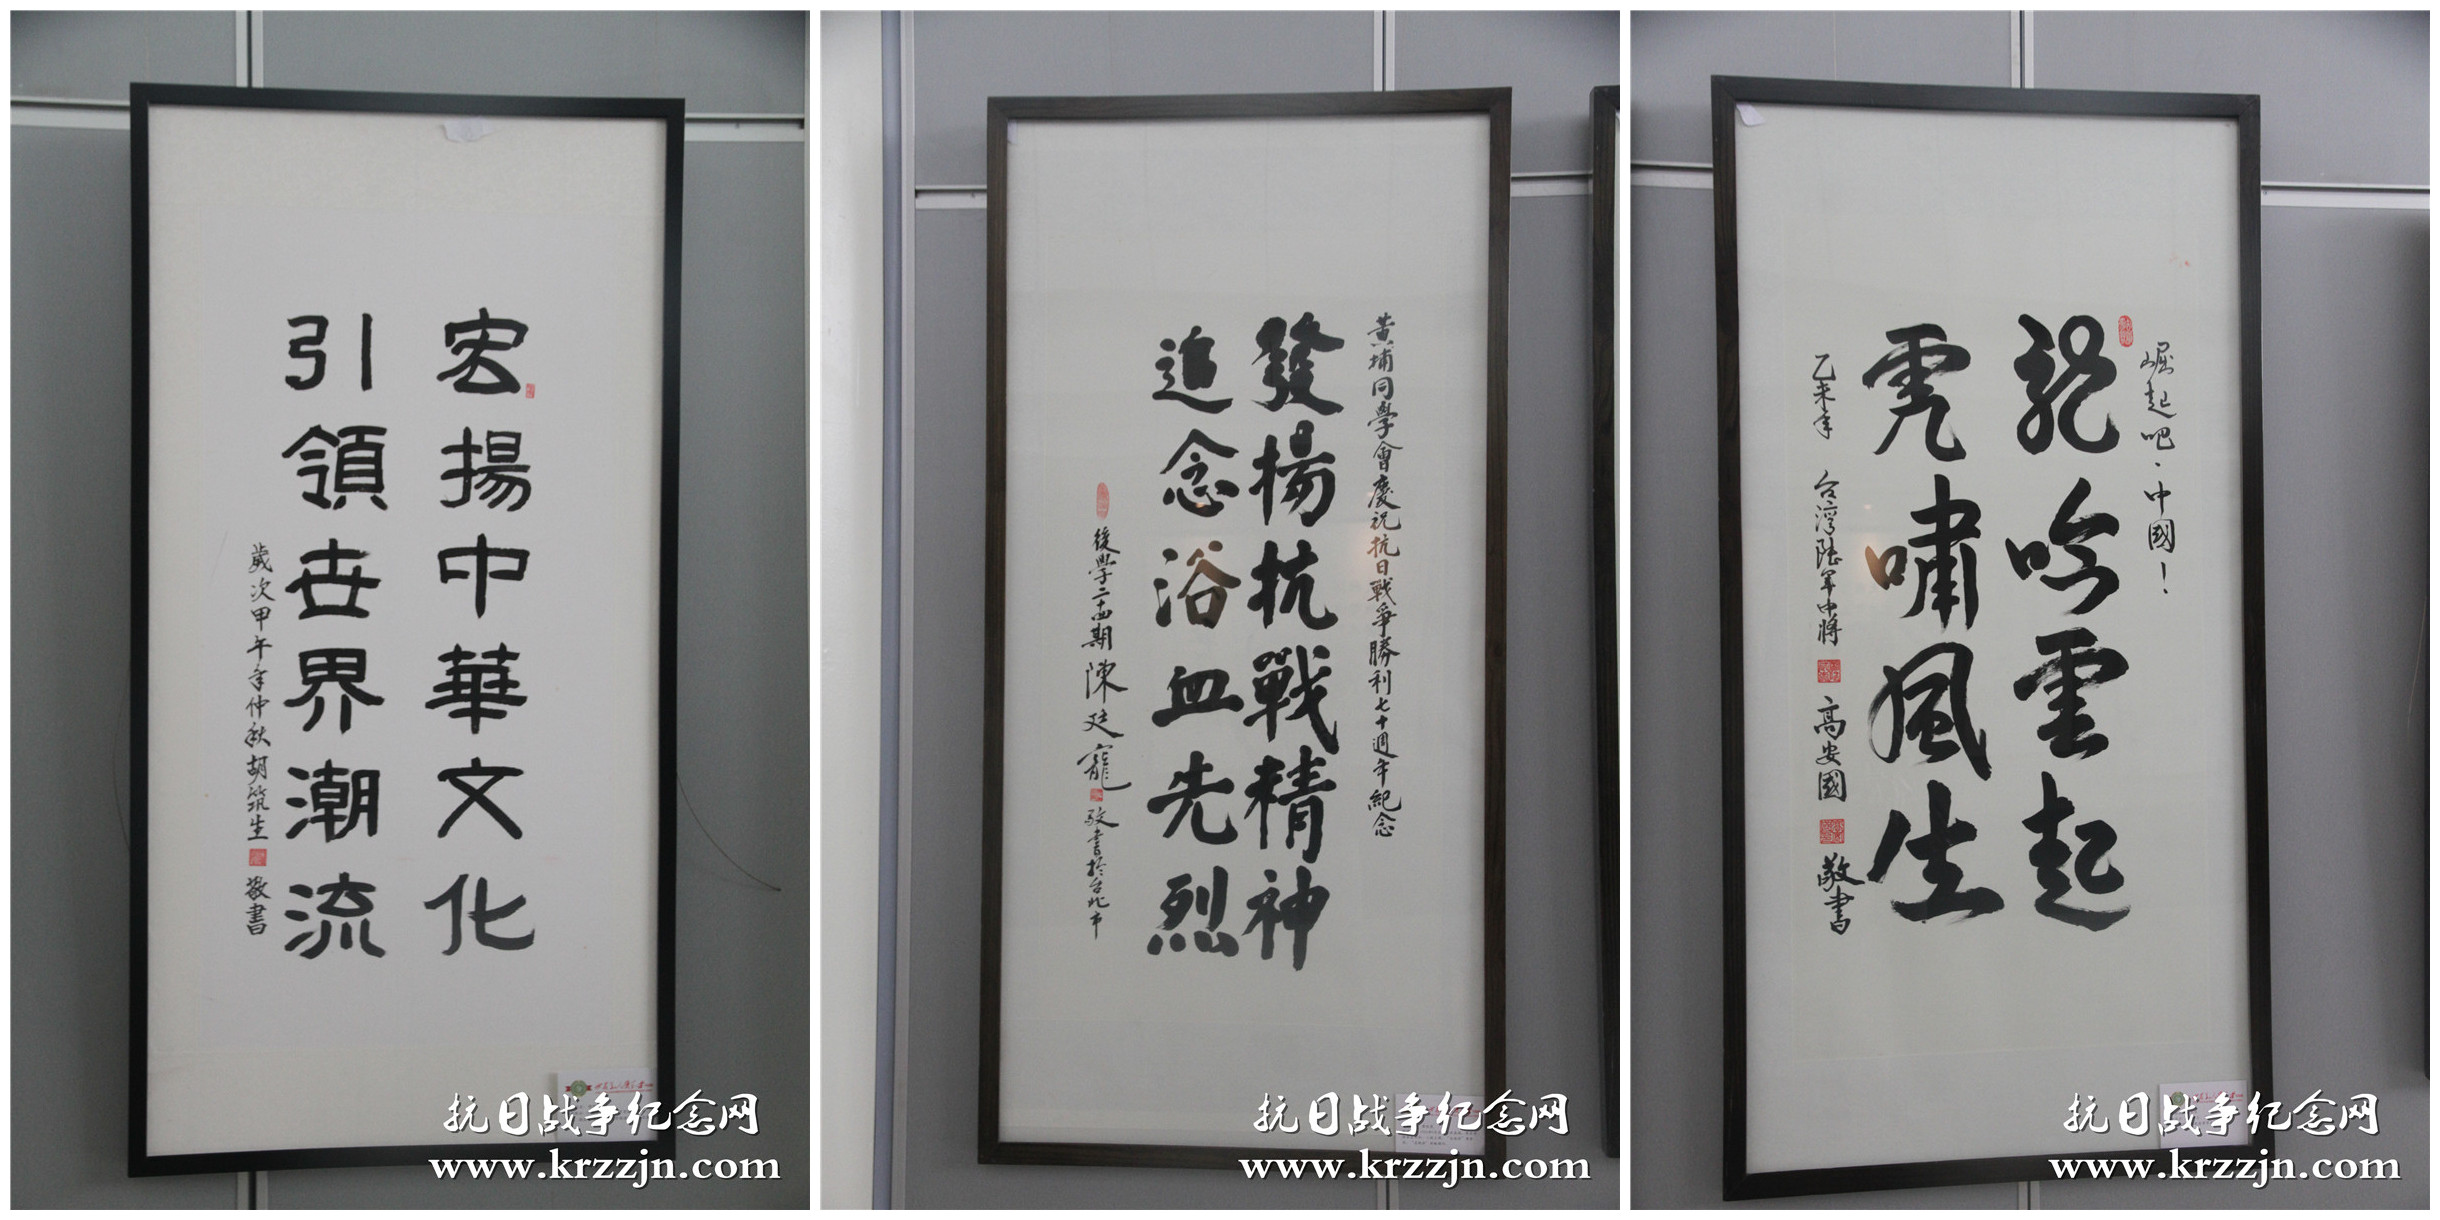 宏揚中華文化
引領世界潮流
歲次甲午年仲秋胡筑生
敬書
抗日战争纪念网
www.krzzjn.com
黄埔同學會慶祝抗日戰爭勝利七十週年紀念
發揚抗戰精神
追念浴血先烈
後學二十四期陳廷寵
敬書於台北市
抗日战争纪念网
www.krzzjn.com
崛起吧、中國！
龍吟雲起
虎嘯風生
乙未年 台灣陸軍中將 高安國 敬書
抗日战争纪念网
www.krzzjn.com